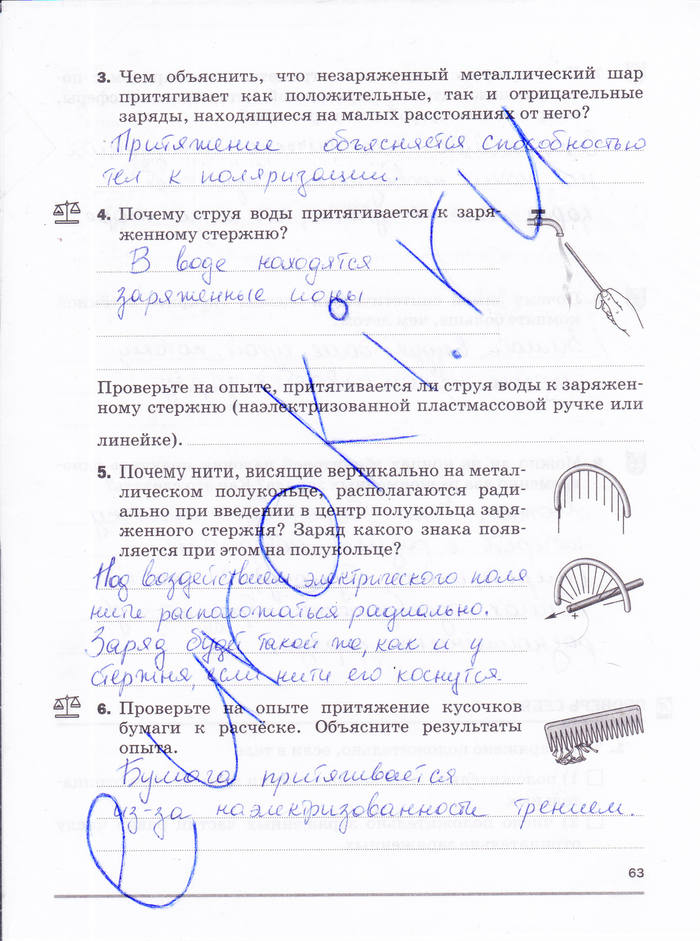 3. Чем объяснить, что незаряженный металлический шар
притягивает как положительные, так и отрицательные
заряды, находящиеся на малых расстояниях от него?
Притяжение объясняется способностью
тел к поляризации.
4. Почему струя воды притягивается к заря-
женному стержню?
В воде находятся
заряженные ионы
Проверьте на опыте, притягивается ли струя воды к заряжен-
ному стержню (наэлектризованной пластмассовой ручке или
линейке).
5. Почему нити, висящие вертикально на метал-
лическом полукольце, располагаются ради-
ально при введении в центр полукольца заря-
женного стержня? Заряд какого знака появ-
ляется при этом на полукольце?
Под воздействием электрического поля
нити расположаться радиально.
Заряд будет такой же, как и у
стержня, если нити его коснутся.
+
6. Проверьте на опыте притяжение кусочков
бумаги к расчёске. Объясните результаты
опыта.
Бумага притягивается
из-за наэлектризованности трением.
63